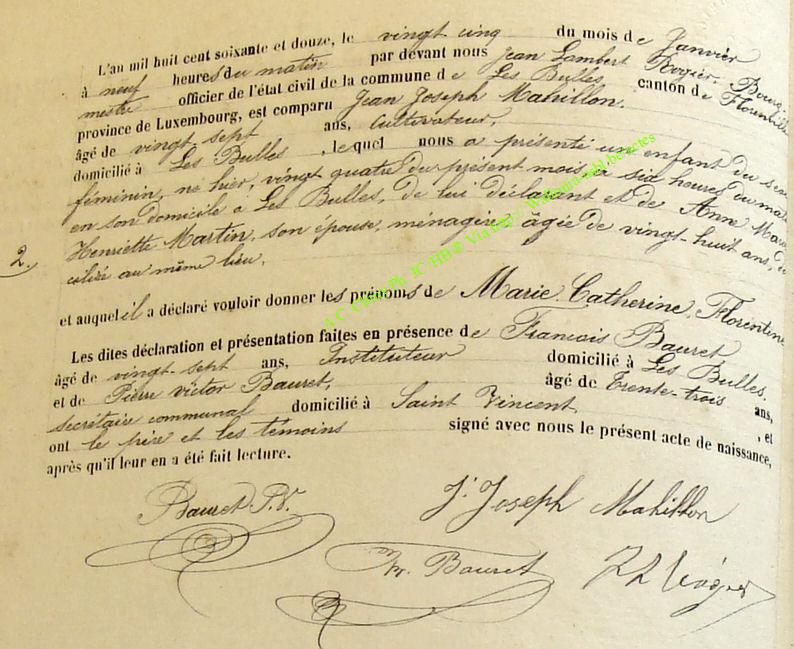 L'an mil huit cent soixante et douze, le vingt cinq du mois de Janvier
à neuf heures du matin par devant nous Jean Lambert Rogier, Bourg-
mestre officier de l'état civil de la commune de Les Bulles canton de Florenville
province de Luxembourg, est comparu Jean Joseph Mahillon.
âgé de vingt sept ans, Cultivateur,
domicilié à Les Bulles, lequel nous a présenté un enfant du sexe
féminin, né hier, vingt quatre du présent mois à six heures du matin
en son domicile à Les Bulles, de lui déclarant et de Anne Marie
Henriette Martin, son épouse, ménagère, âgée de vingt-huit ans,
2.
ciliée au même lieu,
et auquel il a déclaré vouloir donner les prénoms de Marie, Catherine, Florentine
Les dites déclaration et présentation faites en présence de François Bauret
âgé de vingt-sept ans, Instituteur domicilié à Les Bulles,
et de Pierre Victor Bauret, âgé de Trente-trois ans,
secrétaire communal domicilié à Saint Vincent, et
ont le père et les témoins signé avec nous le présent acte de naissance,
après qu'il leur en a été fait lecture.
Bauret P.V. J. Joseph Mahillon
Fr. Bauret